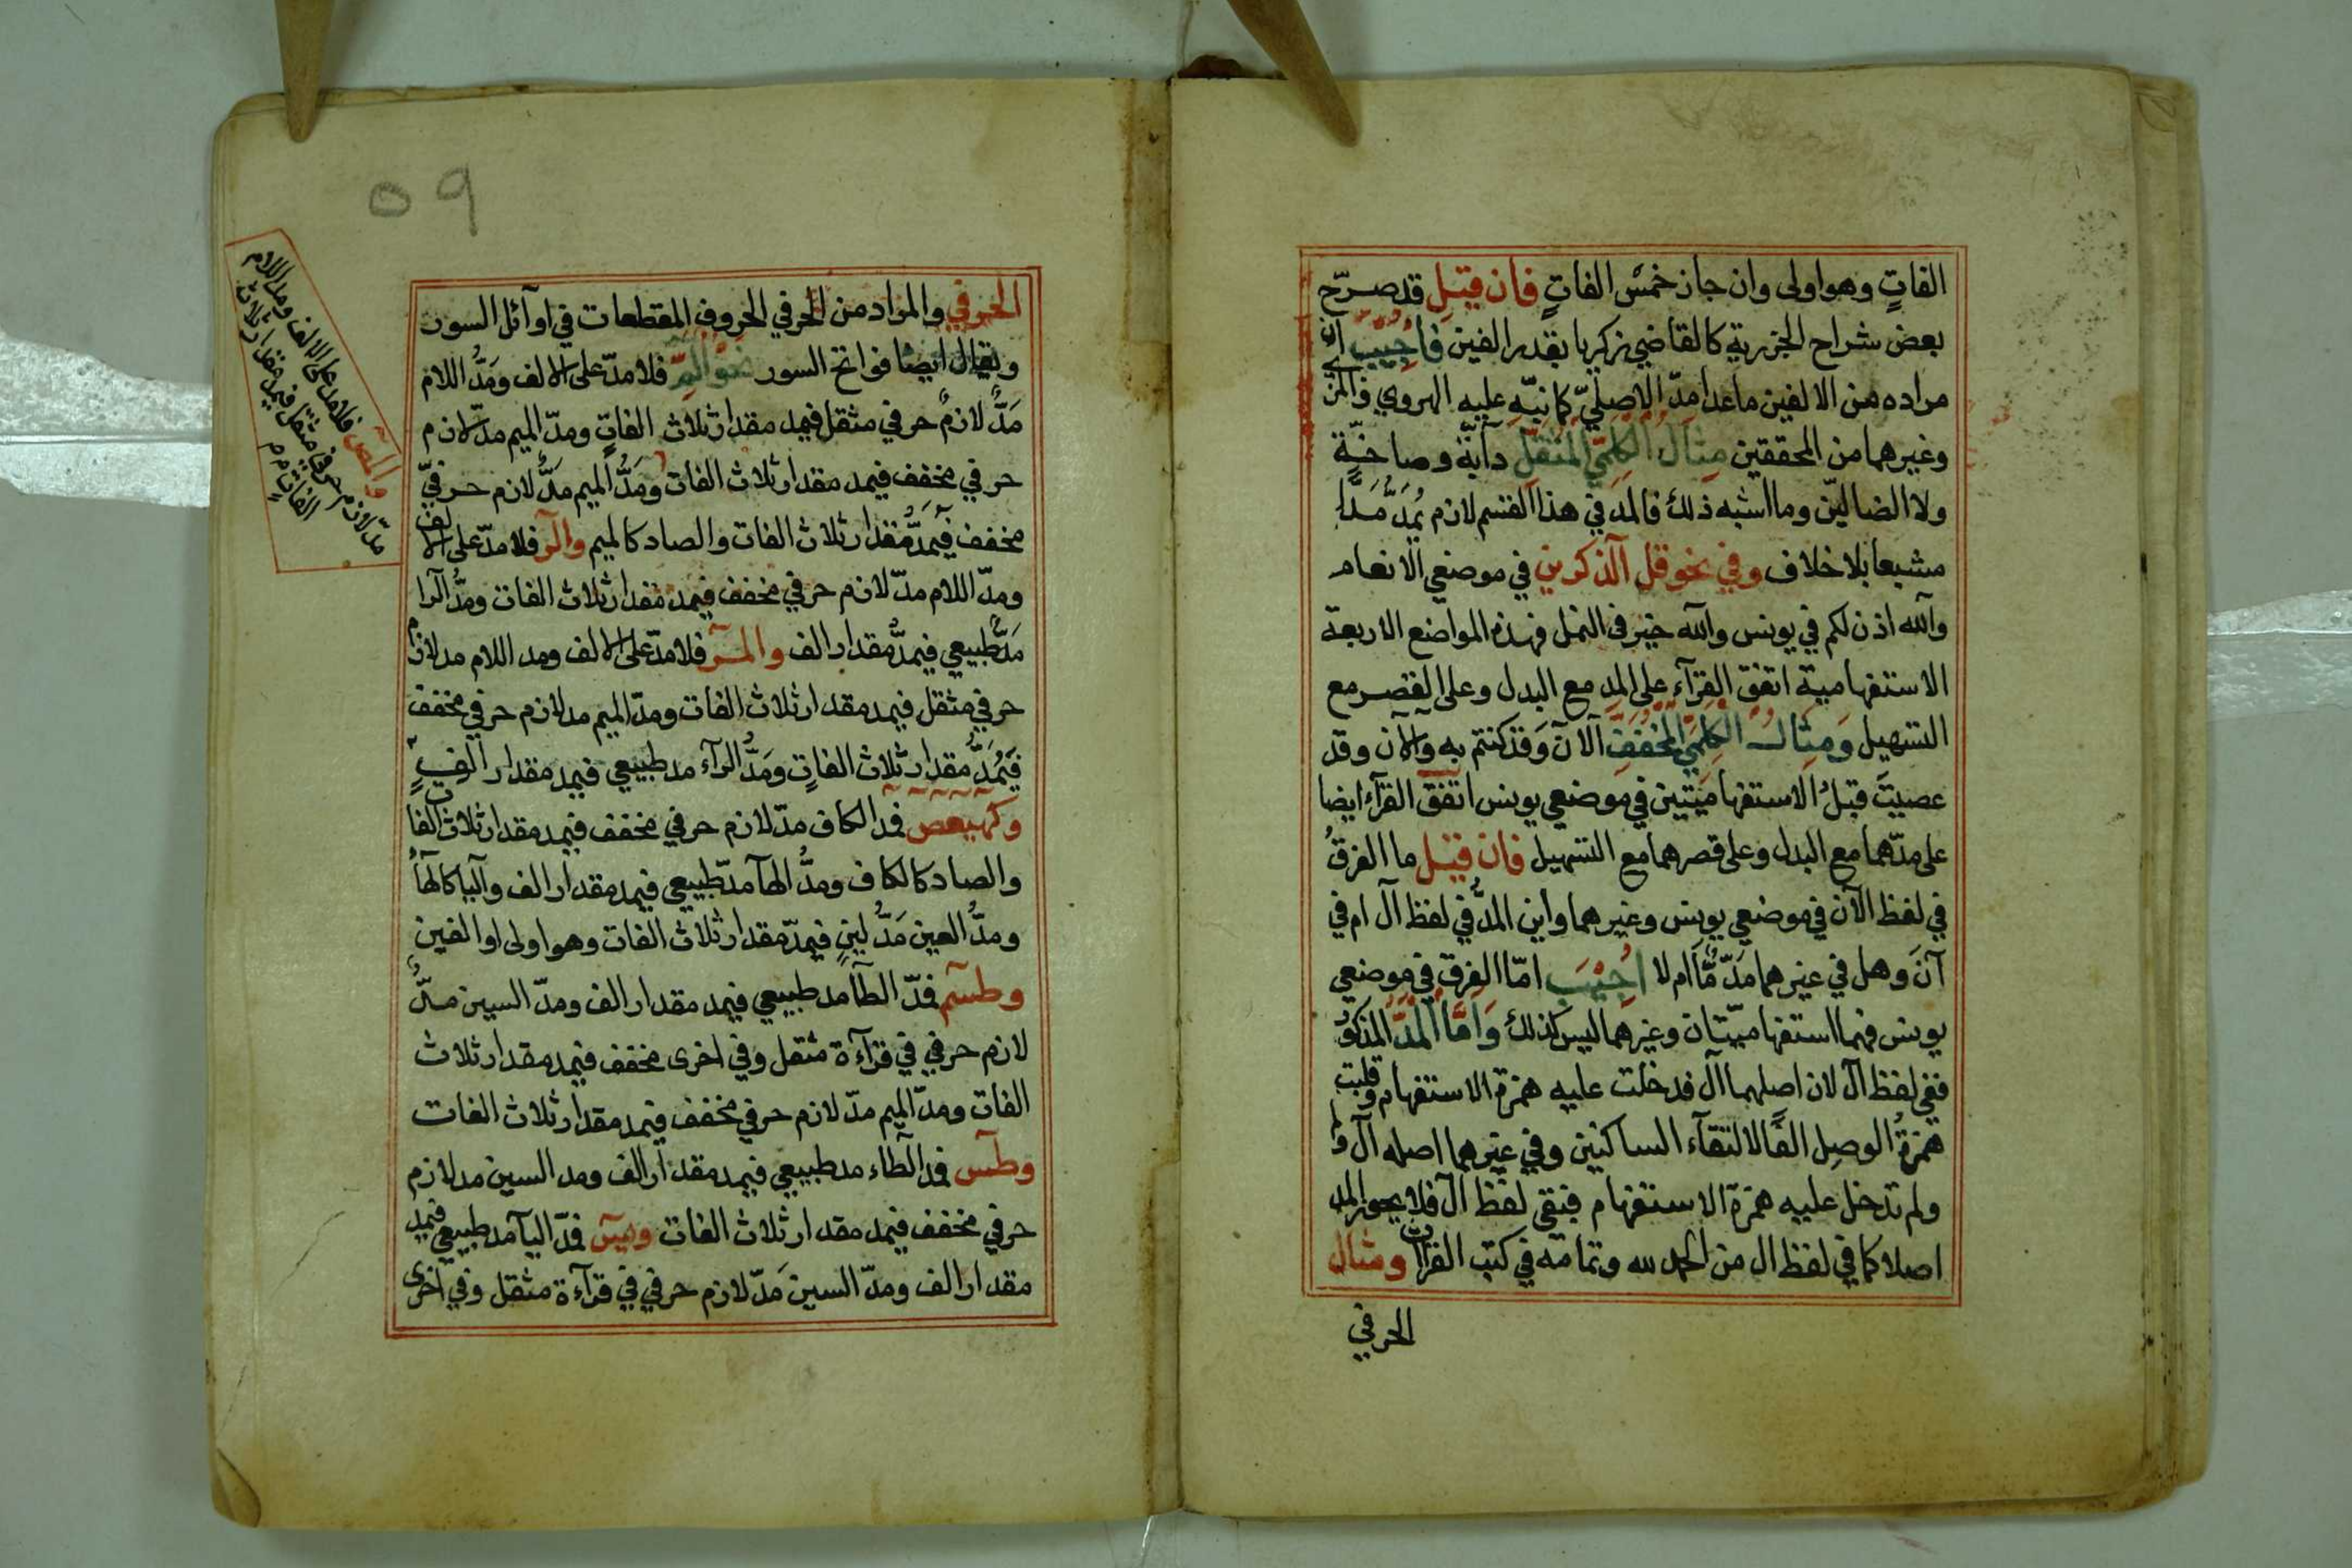 الفاتٍ وهو اولى وان جاز خمْس الفاتٍ فان قيْل قد صرّح
بعض شراح الجزرية كالقاضي زكريا بقدر الفين فأجُيبَ ان
مراده من الالفين ما عدا مدّ الاصليّ كما نبّه عليه الهروي والمز
وغيرهما من المحققين مثال الكلميّ المثقل دآبّة وصاخّة
ولا الضالّين وما اشبه ذلك فالمدّ في هذا القسم لازم يُمدّ مَدًّا
مشبعا بلا خلاف وفي نحو قل آلذكرين في موضعي الانعام
وآلله اذن لكم في يونس وآلله خير في النمل فهذه المواضع الاربعة
الاستفهامية اتفق القرآء على المد مع البدل وعلى القصر مع
التسهيل ومثال الكلميّ المخفف آلآن وقد كنتم به وآلآن وقد
عصيتَ قبلُ الاستفهاميّتين في موضعي يونس اتفق القرآء ايضا
على مدّهما مع البدل وعلى قصرهما مع التسهيل فان قيْل ما الفرقُ
في لفظ الآن في موضعي يونس وغيرهما واين المدُّ في لفظ آل ام في
آنَ وهل في غيرهما مَدّ مَّا ام لا اجُيْبَ امّا الفرق في موضعي
يونس فهما استفهاميّتان وغيرهما ليس كذلك وَامَّا المَدُّ المذكور
ففي لفظ آل لان اصلهما اآل فدخلت عليه همزة الاستفهام وقلبت
همزةُ الوصِل الفًا لالتقآء الساكنين وفي غيرهما اصله آل
ولم تدخل عليه همزة الاستفهام فبقي لفظ ال فلا يجوز المد
اصلا كما في لفظ ال من الحمد لله وتمامه في كتب القراات ومثال
الحرفي
٥٩
الحرفي والمراد من الحرفي الحروف المقطعات في اوآئل السور
ويقال ايضا فواتح السور نحو الٓمّٓ فلا مدّ على الالف ومَدُّ اللام
مَدٌّ لازمٌ حرفي مثقل فيمد مقدار ثلاث الفاتٍ ومدّ الميم مدّ لازم
حرفي مخفف فيمد مقدار ثلاث الفات ومَدُّ الميم مدٌّ لازم حرفيّ
مخفف فيَمَدُّ مقدار ثلاث الفات والصاد كالميم والٓر فلا مدّ على الالف
ومدّ اللام مدّ لازم حرفي مخفف فيمد مقدار ثلاث الفات ومدُّ الرا
مَدّ طبيعي فيمدُّ مقدار الف والٓمٓر فلا مدّ على الالف ومد اللام مد لازم
حرفي مثقل فيمد مقدار ثلاث الفات ومدّ الميم مد لازم حرفي مخفف
فيُمَدُّ مقدار ثلاث الفاتٍ ومَدُّ الرآء مد طبيعي فيمد مقدار الفٍ
وكٓهيعٓصٓ فمد الكاف مدّ لازم حرفي مخفف فيمد مقدار ثلاث الفات
والصاد كالكاف ومدُّ الهآ مدّ طبيعي فيمد مقدار الف واليا كالهآ
ومدُّ العين مَدُّ لينٍ فيمدّ مقدار ثلاث الفات وهو اولى او الفين
وطسٓمٓ فمدّ الطآ مد طبيعي فيمد مقدار الف ومدّ السين مدٌّ
لازم حرفي في قرآءة مثقل وفي اخرى مخفف فيمد مقدار ثلاث
الفات ومدّ الميم مدّ لازم حرفي مخفف فيمد مقدار ثلاث الفات
وطسٓ فمد الطاء مد طبيعي فيمد مقدار الف ومد السين مد لازم
حرفي مخفف فيمد مقدار ثلاث الفات ويسٓ فمدّ اليآ مد طبيعي فيمد
مقدار الف ومدّ السين مَدّ لازم حرفي في قرآءة مثقل وفي اخرى
والٓمٓصٓ فلا مد على الالف ومد اللام
مدّ لازم حرفي مثقل فيمد مقدار ثلاث
الفاتٍ